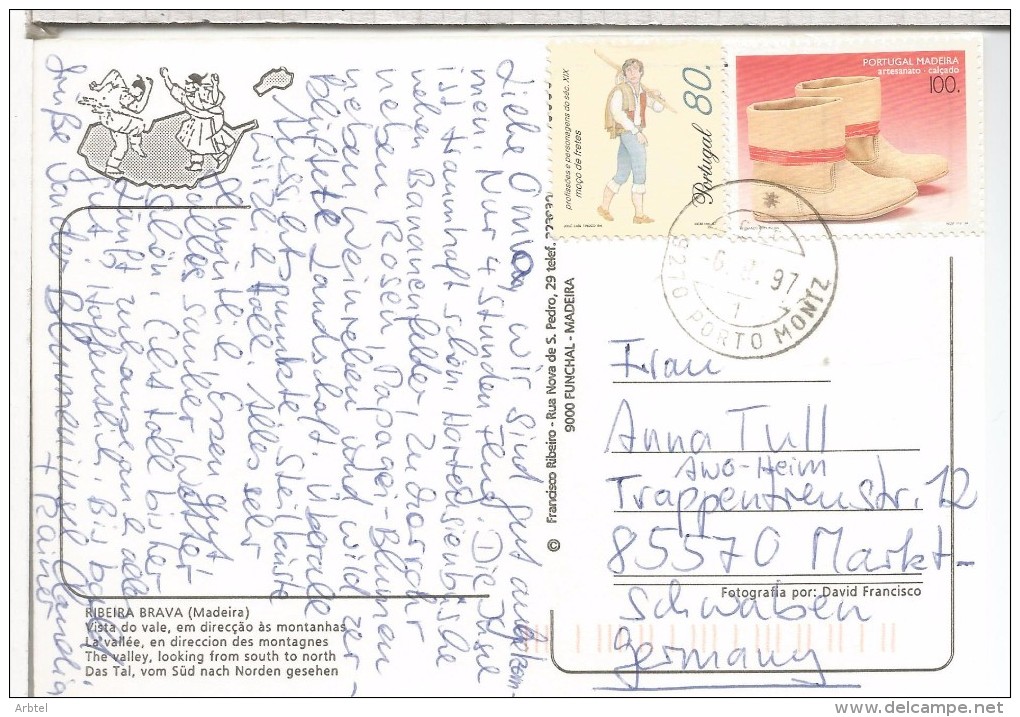 Liebe Omi, wir sind gut angekom-
men. Nur 4 Stunden Flug. Die Insel
ist traumhaft schön. Hortensienbüsche
neben Bananenfelder, Zuckerrohr
neben Rosen, Papagei-Blumen
neben Weinreben und wild zer-
klüftete Landschaft. Überall
Aussichtspunkte, steilenste
wirze toll. Alles sehr
gemütlich. Essen gut
alles sauber. Wetter
schön. Echt toll bisher
zuhause alles
gut. Hoffentlich. Bis bald
Grüße Claudia
+ Rainer
RIBEIRA BRAVA (Madeira)
Vista do vale, em direcção às montanhas
La vallée, en direccion des montagnes
The valley, looking from south to north
Das Tal, vom Süd nach Norden gesehen
© Francisco Ribeiro - Rua Nova de S. Pedro, 29 telef. 223932
9000 FUNCHAL - MADEIRA
profissões e personagens do séc. XIX
moço de fretes
Portugal 80.
PORTUGAL MADEIRA
artesanato · calçado
100.
-6. 97
1
9270 PORTO MONIZ
Frau
Anna Tull
Awo-Heim
Trappentreustr. 12
85570 Markt-
Schwaben
Germany
Fotografia por: David Francisco
Arbtel
www.delcampe.net